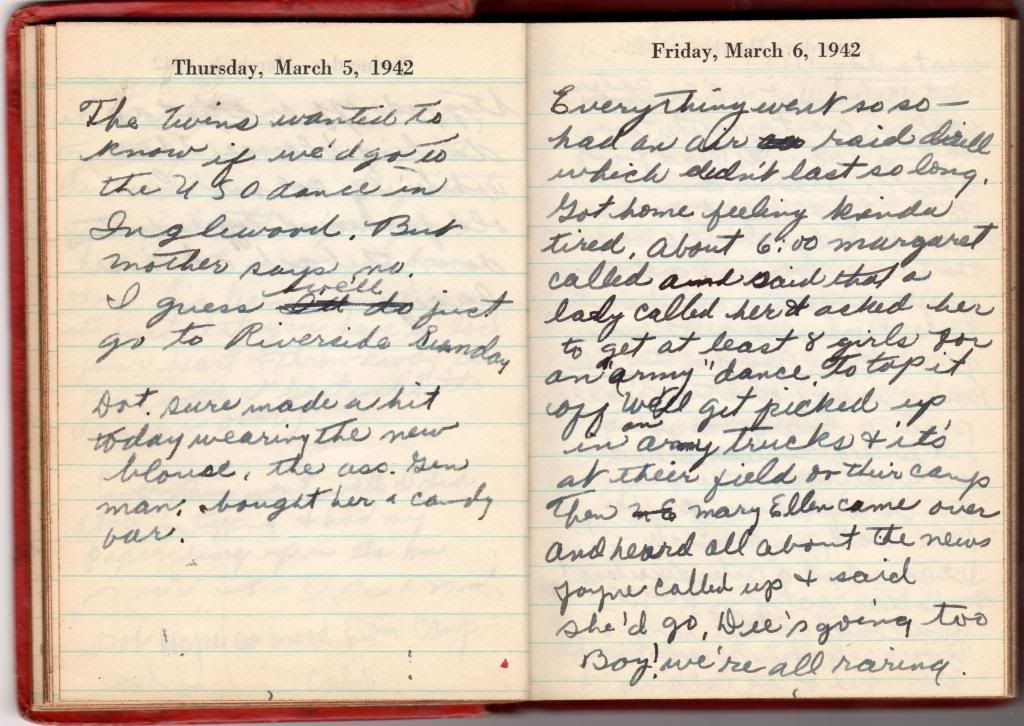 Thursday, March 5, 1942
The twins wanted to
know if we'd go to
the U S O dance in
Inglewood. But
mother says no.
I guess we'll just
go to Riverside Sunday
Dot. sure made a hit
today wearing the new
blouse, the ass. Gen
man. bought her a candy
bar.
Friday, March 6, 1942
Everything went so so —
had an air raid drill
which didn't last so long.
Got home feeling kinda
tired. About 6:00 margaret
called and said that a
lady called her & asked her
to get at least 8 girls for
an "army" dance. To top it
off We'll get picked up
in an army trucks & it's
at their field or their camp
Then mary Ellen came over
and heard all about the news
Jayne called up & said
she'd go, Dee's going too
Boy! we're all raring.